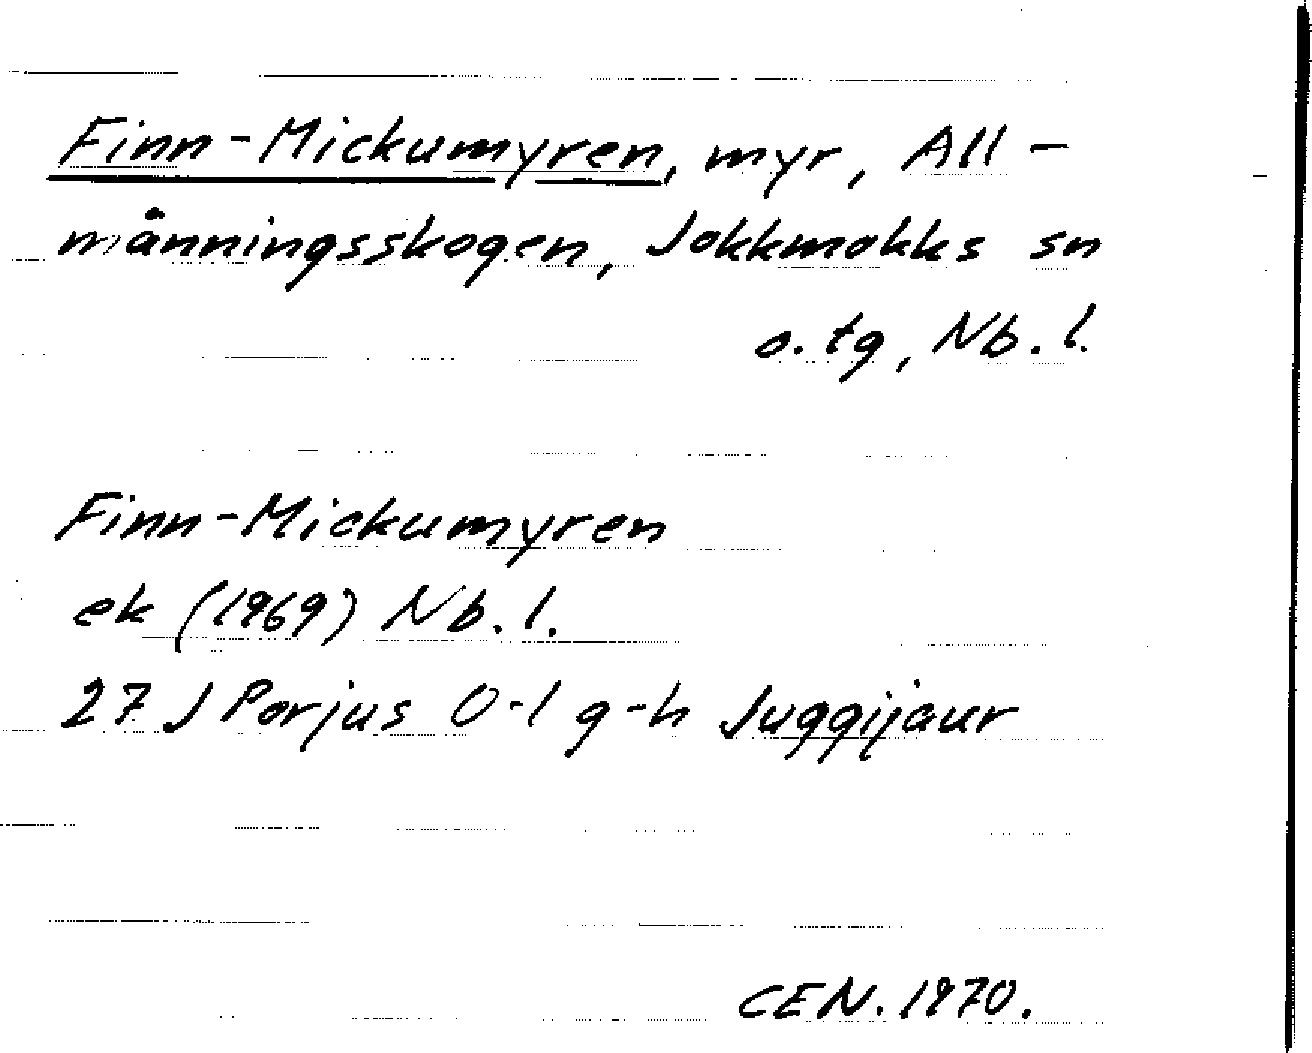 Finn-Mickumyren, myr, All-
männingsskogen, Jokkmokks sn
o. tg, Nb. l.
Finn-Mickumyren
ek (1969) Nb. l.
27 J Porjus 0-1 g-h Juggijaur
CEN. 1970.